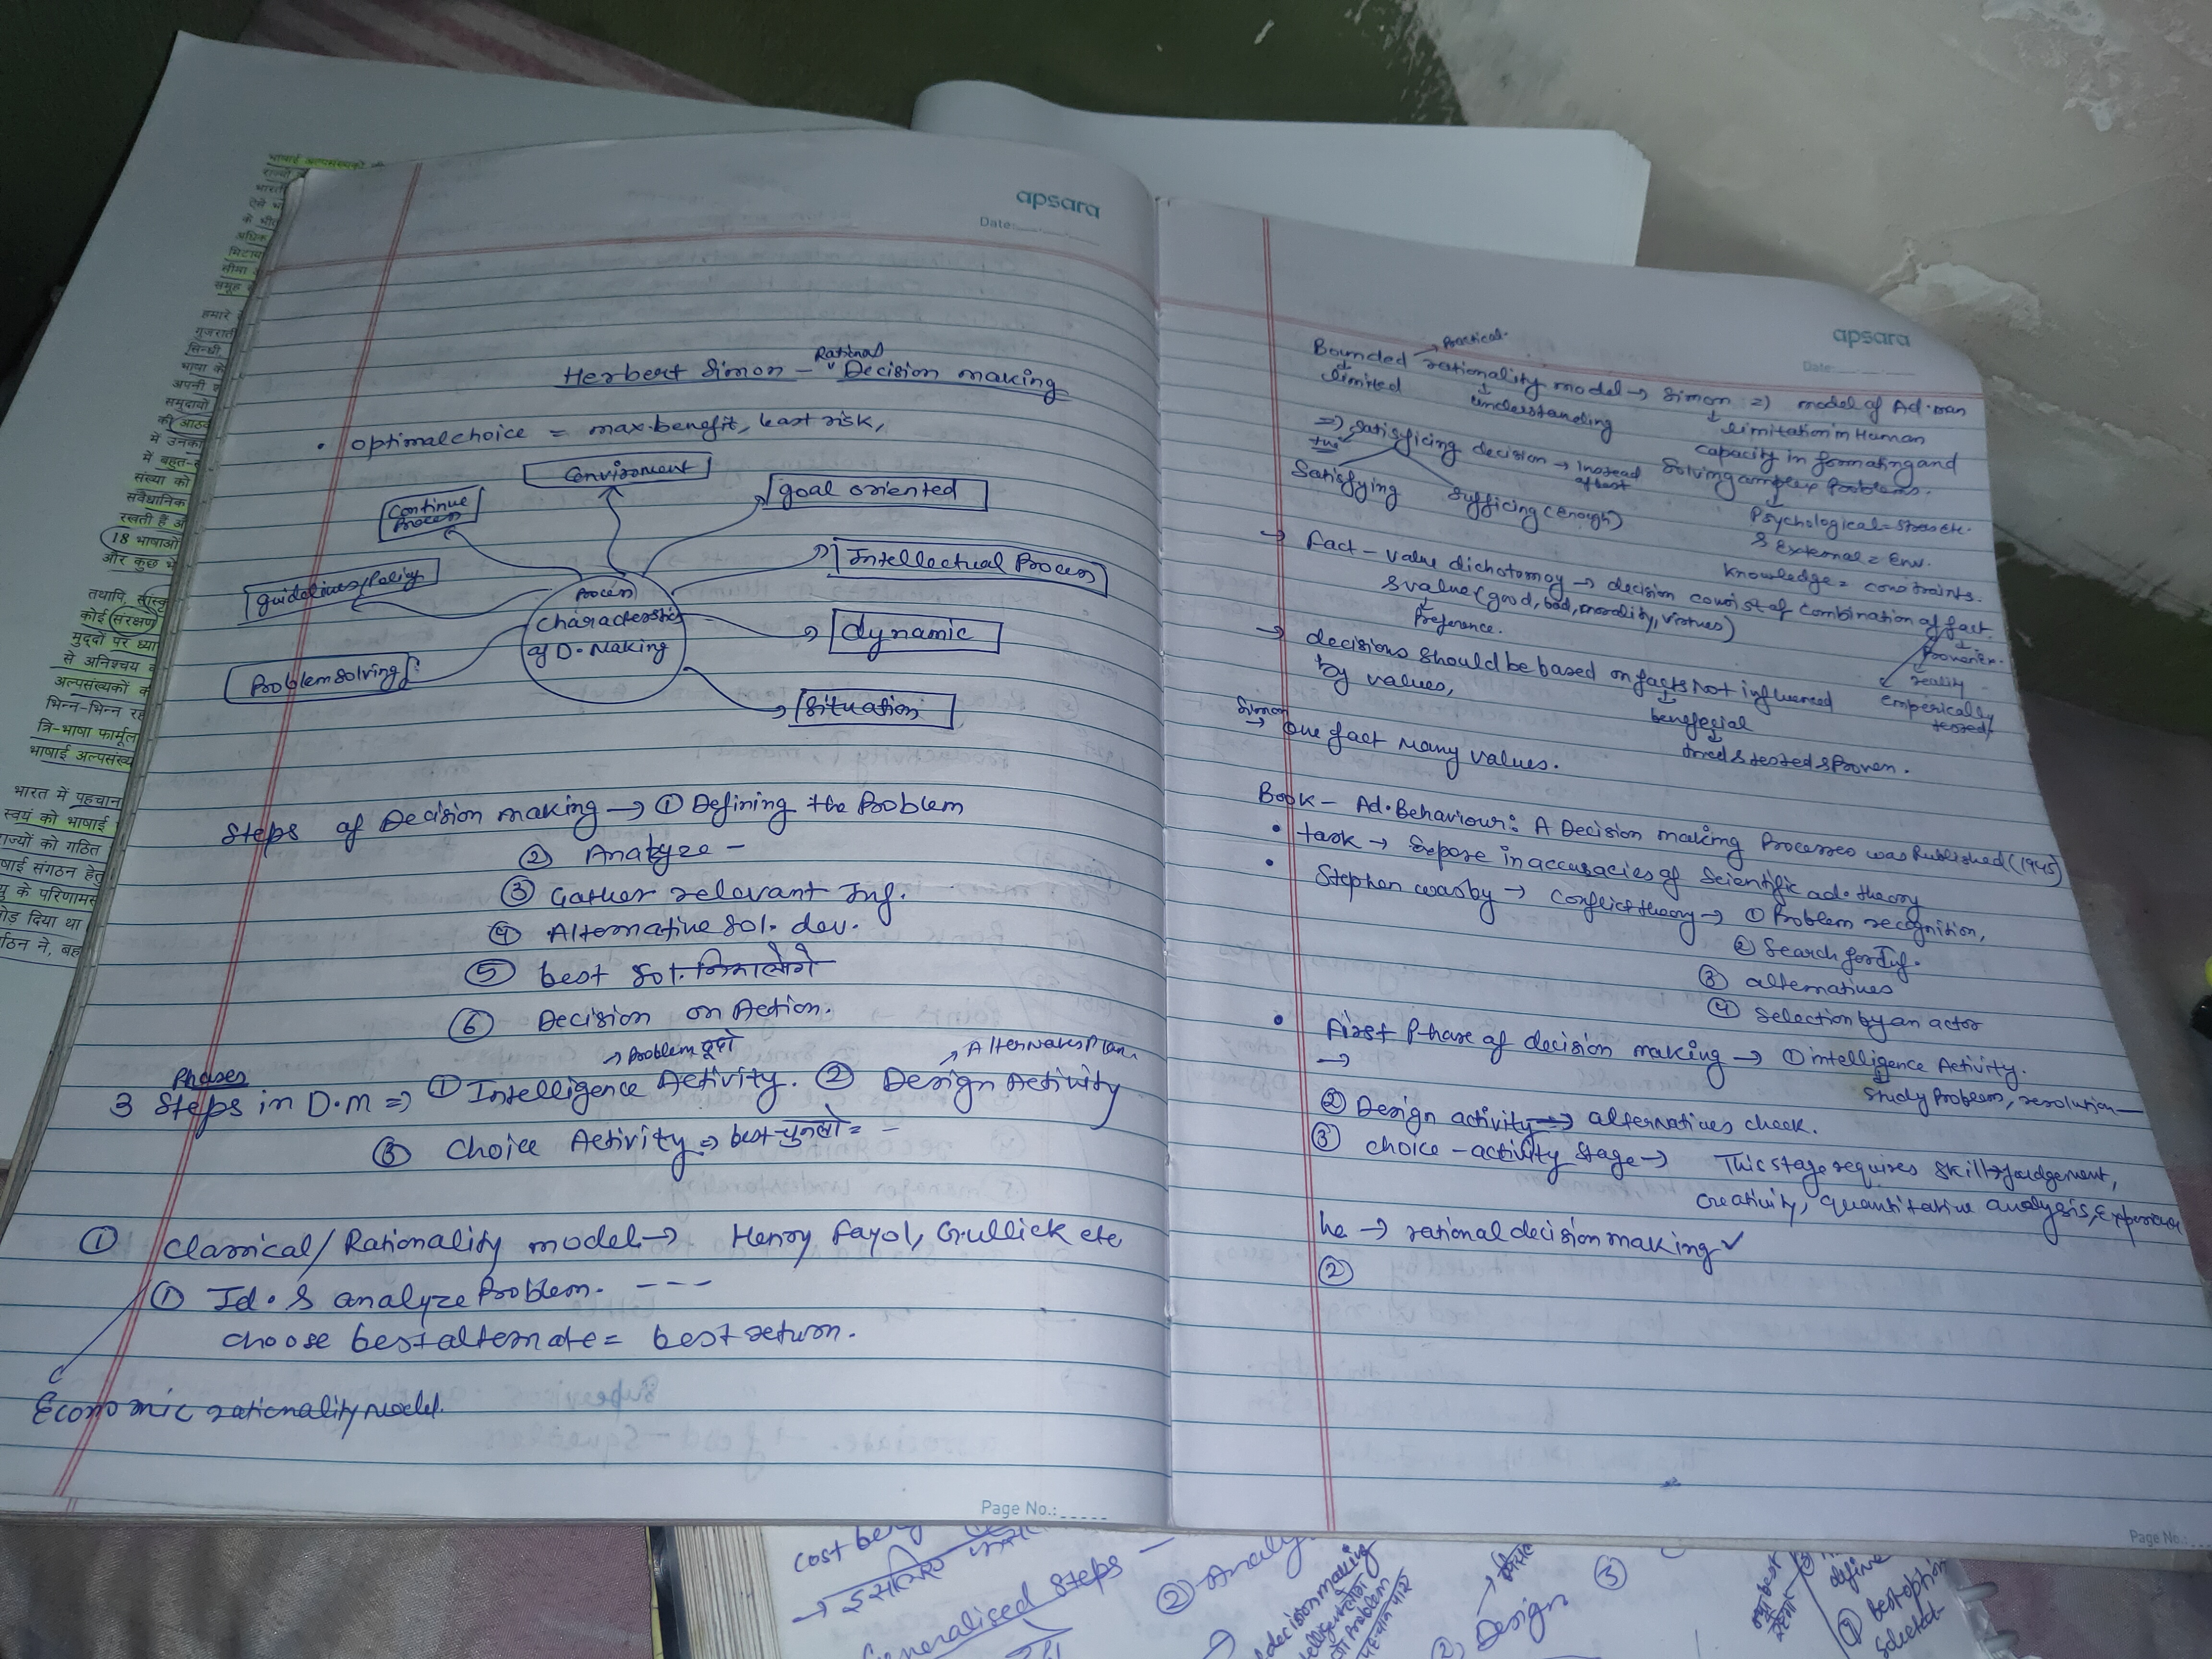 apsara
Date:
Herbert Simon - Rational Decision making
• optimal choice = max. benefit, least risk,
Envirnment
goal oriented
Continue Process
Intellectual Process
guidelines/Policy
Process
Characterstics of D. Making
dynamic
Problem solving
Situation
Steps of Decision making → ① Defining the Problem
② Analyze -
③ Gather relevant Inf.
④ Alternative Sol. dev.
⑤ best Sol. निकालेंगे
⑥ Decision on Action.
→ Problem ढूंढो
→ Alternate Plan
Phases
3 Steps in D.M ⇒ ① Intelligence Activity. ② Design Activity
③ Choice Activity ⇒ best चुनलो = -
① Classical/Rationality model → Henry Fayol, Gullick etc
① Id. & analyze Problem. ---
choose best alternate = best return.
Economic rationality model.
Page No.:
apsara
Date:
→ Practical.
Bounded rationality model → Simon ⇒ model of Ad. man
↓ limited
↓ understanding
↓ limitation in Human
capacity in formating and
Solving complex Problems.
⇒ Satisficing decision → instead of best
Satisfying
Sufficing (enough)
Psychological = Stress etc.
& External = Env.
Knowledge = constraints.
→ Fact - value dichotomoy → decision consist of combination of fact
& value (good, bad, morality, virtues)
↓ Preference.
↓ reality
emperically tested
→ decisions should be based on facts Not influenced
by values,
↓ benefecial
↓ tried & tested & Proven.
Simon
→ One fact Many values.
Book - Ad. Behaviour: A Decision making Processes was Published (1945)
• task → Expose inaccuracies of Scientific ad. theory
• Stephen wasby → Conflict theory → ① Problem recognition,
② Search for Inf.
③ alternatives
④ Selection by an actor
• First Phase of decision making → ① intelligence Activity.
→
↓ Study Problem, resolution
② Design activity → alternatives check.
③ choice-activity stage → This stage requires skill → judgement,
creativity, quantitative analysis, Experience
he → rational decision making ✓
②
Page No.:
भाषाई अल्पसंख्यकों
18 भाषाओं
और कुछ
तथापि
मुद्दों पर
से अनिश्चय
अल्पसंख्यकों
भिन्न-भिन्न
त्रि-भाषा फार्मूला
भाषाई
भारत में पहचान
स्वयं को भाषाई
के परिणाम
दिया था
Generalised Steps -
② Analy
decision making
② Design
③
define
best option
Selected